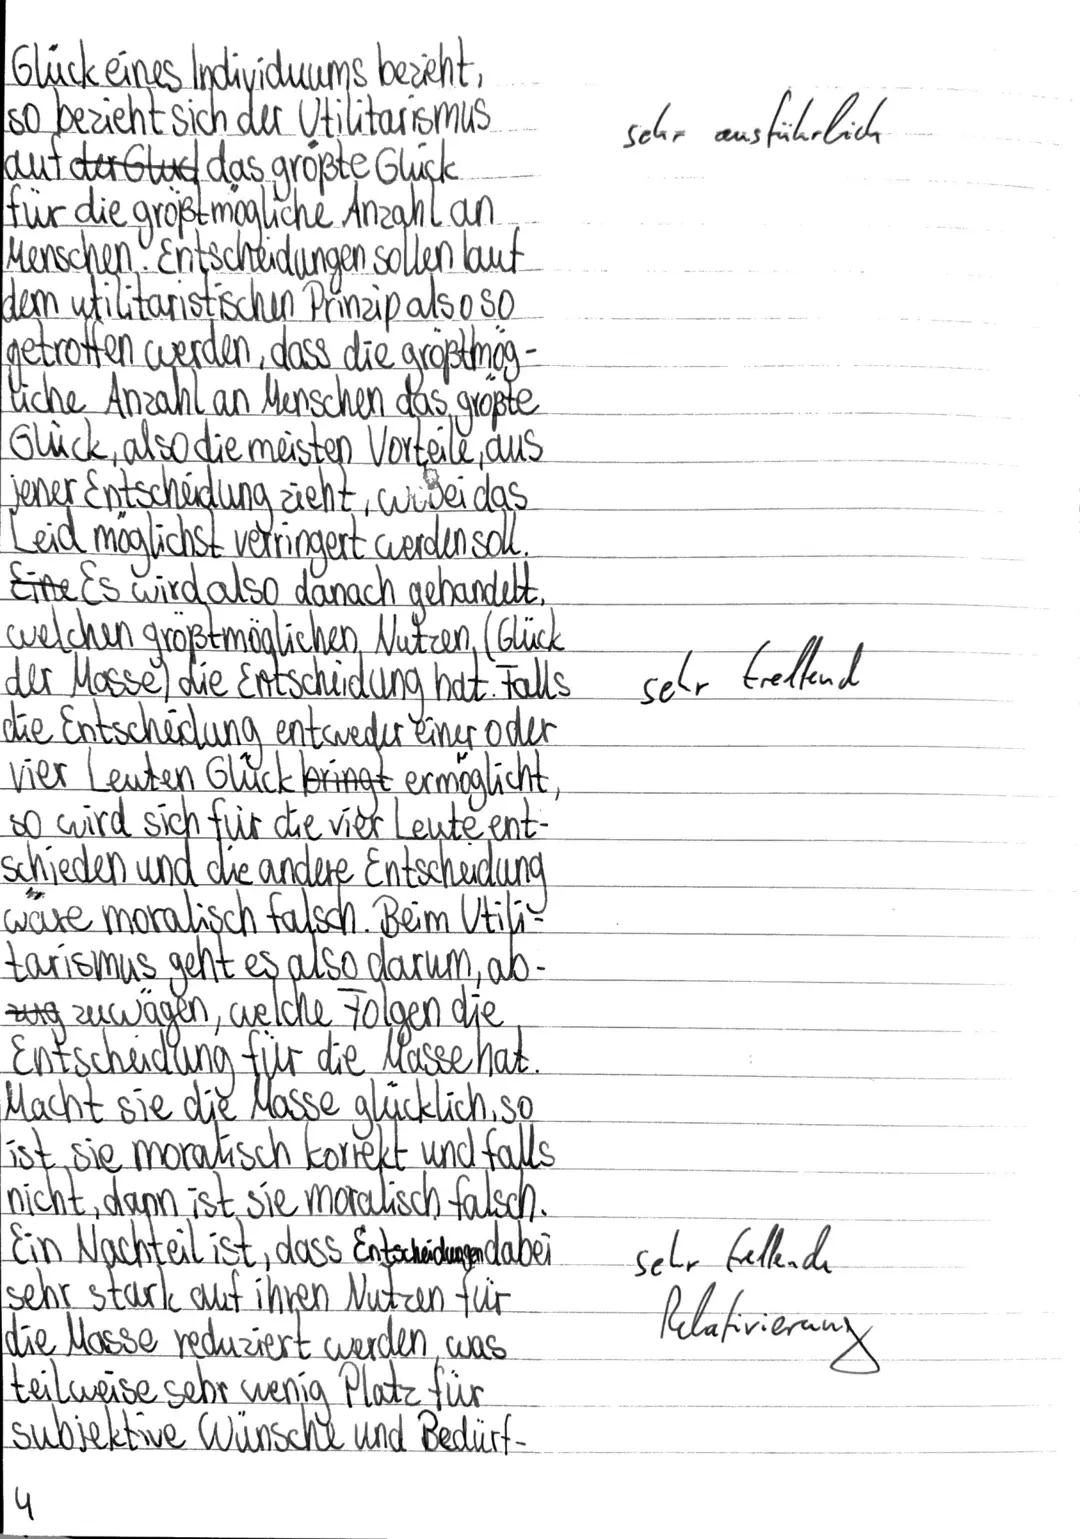 Glück eines Individuums bezieht,
so bezieht sich der Utilitarismus
sehr ausführlich
auf der Glück das größte Glück
für die größtmögliche Anzahl an
Menschen". Entscheidungen sollen laut
dem utilitaristischen Prinzip also so
getroffen werden, dass die größtmög-
liche Anzahl an Menschen das größte
Glück, also die meisten Vorteile, aus
jener Entscheidung zieht, wobei das
Leid möglichst verringert werden soll.
Eine Es wird also danach gehandelt,
welchen größtmöglichen Nutzen (Glück
der Masse) die Entscheidung hat. Falls
sehr treffend
die Entscheidung entweder einer oder
vier Leuten Glück bringt ermöglicht,
so wird sich für die vier Leute ent-
schieden und die andere Entscheidung
wäre moralisch falsch. Beim Utili-
tarismus geht es also darum, ab-
zuwägen, welche Folgen die
Entscheidung für die Masse hat.
Macht sie die Masse glücklich, so
ist sie moralisch korrekt und falls
nicht, dann ist sie moralisch falsch.
Ein Nachteil ist, dass Entscheidungen dabei
sehr treffende
sehr stark auf ihren Nutzen für
Relativierung
die Masse reduziert werden, was
teilweise sehr wenig Platz für
subjektive Wünsche und Bedürf-
4